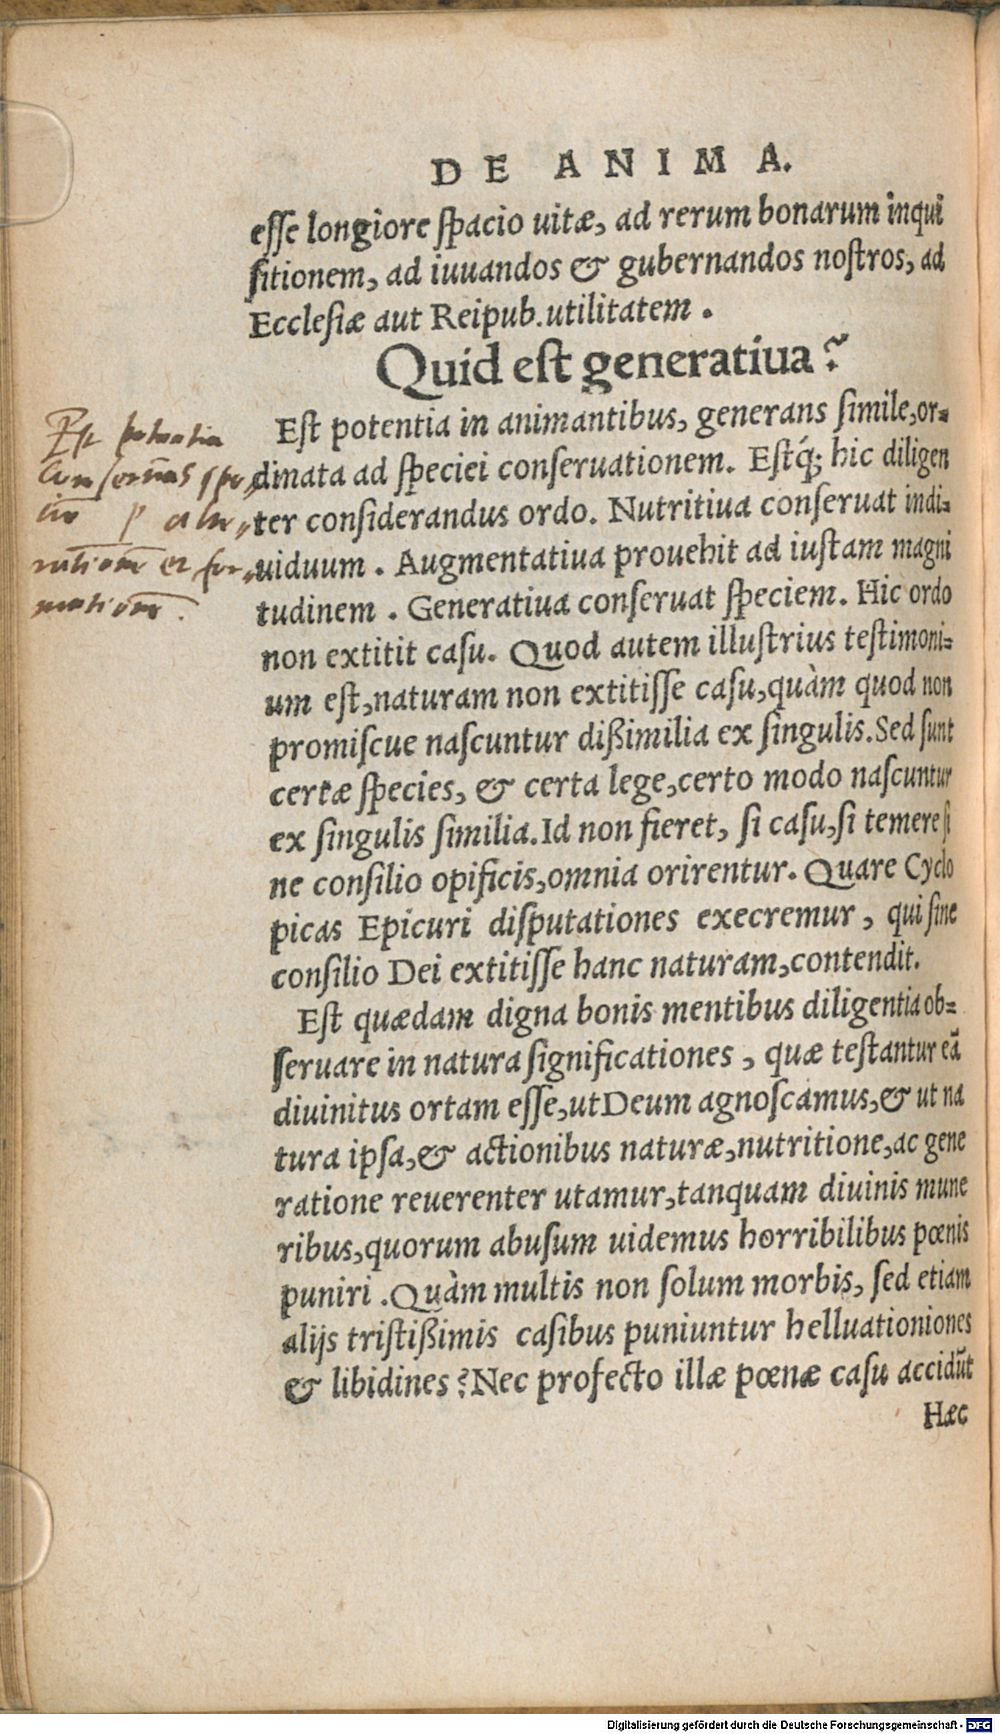 DE ANIMA.
eſſe longiore ſpacio uitæ, ad rerum bonarum inqui
ſitionem, ad iuuandos & gubernandos noſtros, ad
Eccleſiæ aut Reipub. utilitatem .
Quid eſt generatiua?
Eſt potentia in animantibus, generans ſimile, or-
dinata ad ſpeciei conſeruationem. Eſtq́; hic diligen
ter conſiderandus ordo. Nutritiua conſeruat indi-
uiduum . Augmentatiua prouehit ad iuſtam magni
tudinem . Generatiua conſeruat ſpeciem. Hic ordo
non extitit caſu. Quod autem illuſtrius teſtimoni-
um eſt, naturam non extitiſſe caſu, quàm quod non
promiſcue naſcuntur dißimilia ex ſingulis. Sed ſunt
certæ ſpecies, & certa lege, certo modo naſcuntur
ex ſingulis ſimilia. Id non fieret, ſi caſu, ſi temere ſi
ne conſilio opificis, omnia orirentur. Quare Cyclo
picas Epicuri diſputationes execremur, qui ſine
conſilio Dei extitiſſe hanc naturam, contendit.
Eſt quædam digna bonis mentibus diligentia ob-
ſeruare in natura ſignificationes, quæ teſtantur eã
diuinitus ortam eſſe, ut Deum agnoſcamus, & ut na
tura ipſa, & actionibus naturæ, nutritione, ac gene
ratione reuerenter utamur, tanquam diuinis mune
ribus, quorum abuſum uidemus horribilibus pœnis
puniri . Quàm multis non ſolum morbis, ſed etiam
alijs triſtißimis caſibus puniuntur helluationiones
& libidines? Nec profecto illæ pœnæ caſu accidũt
Hæc
Est potentia
conseruãs spe
ciẽ p
et for
mationẽ.
Digitalisierung gefördert durch die Deutsche Forschungsgemeinschaft - DFG